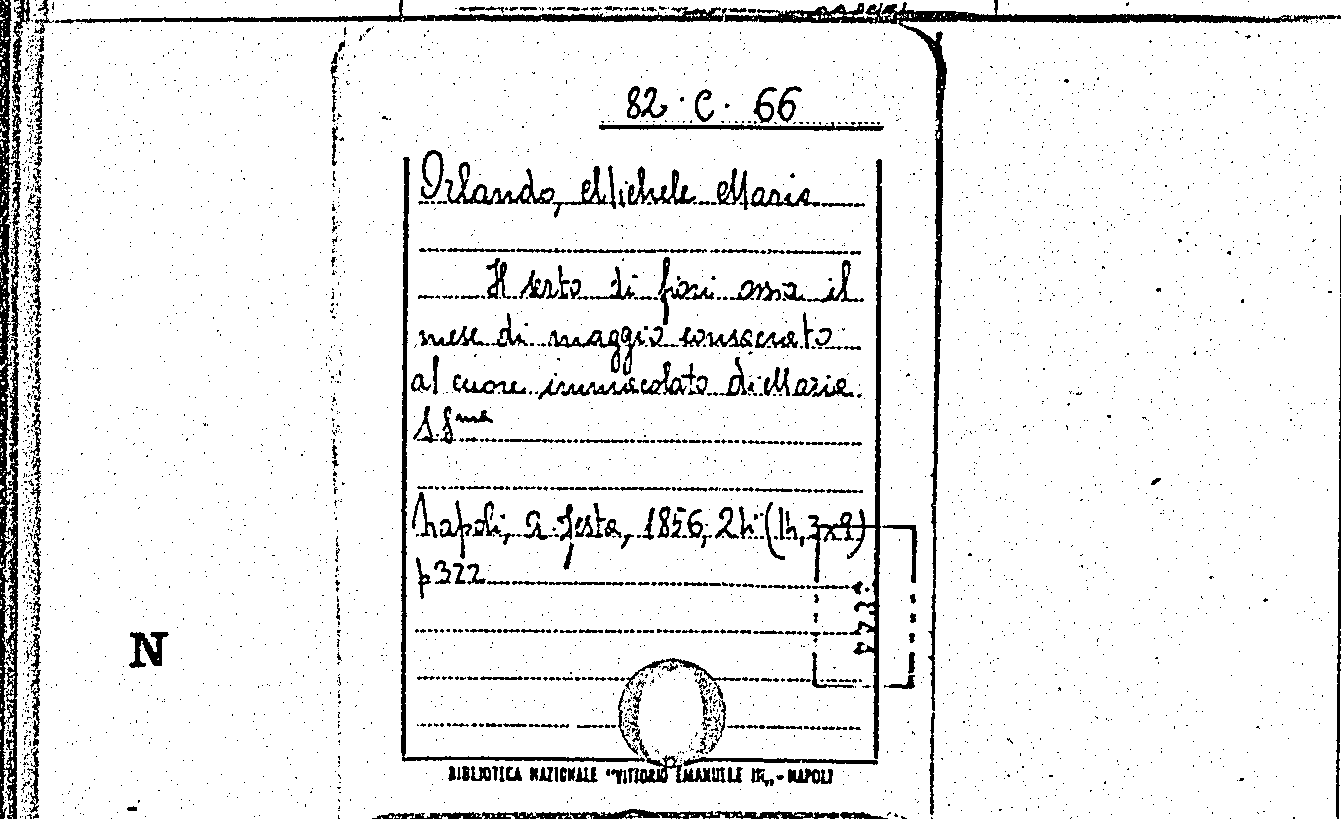 82 · C · 66
Orlando, Michele Maria
Il serto di fiori ossia il
mese di maggio consacrato
al cuore immacolato di Maria
SS.ma
Napoli, G. Testa, 1856, 24° (14,3x9)
p322
N
BIBLIOTECA NAZIONALE "VITTORIO EMANUELE III„ - NAPOLI